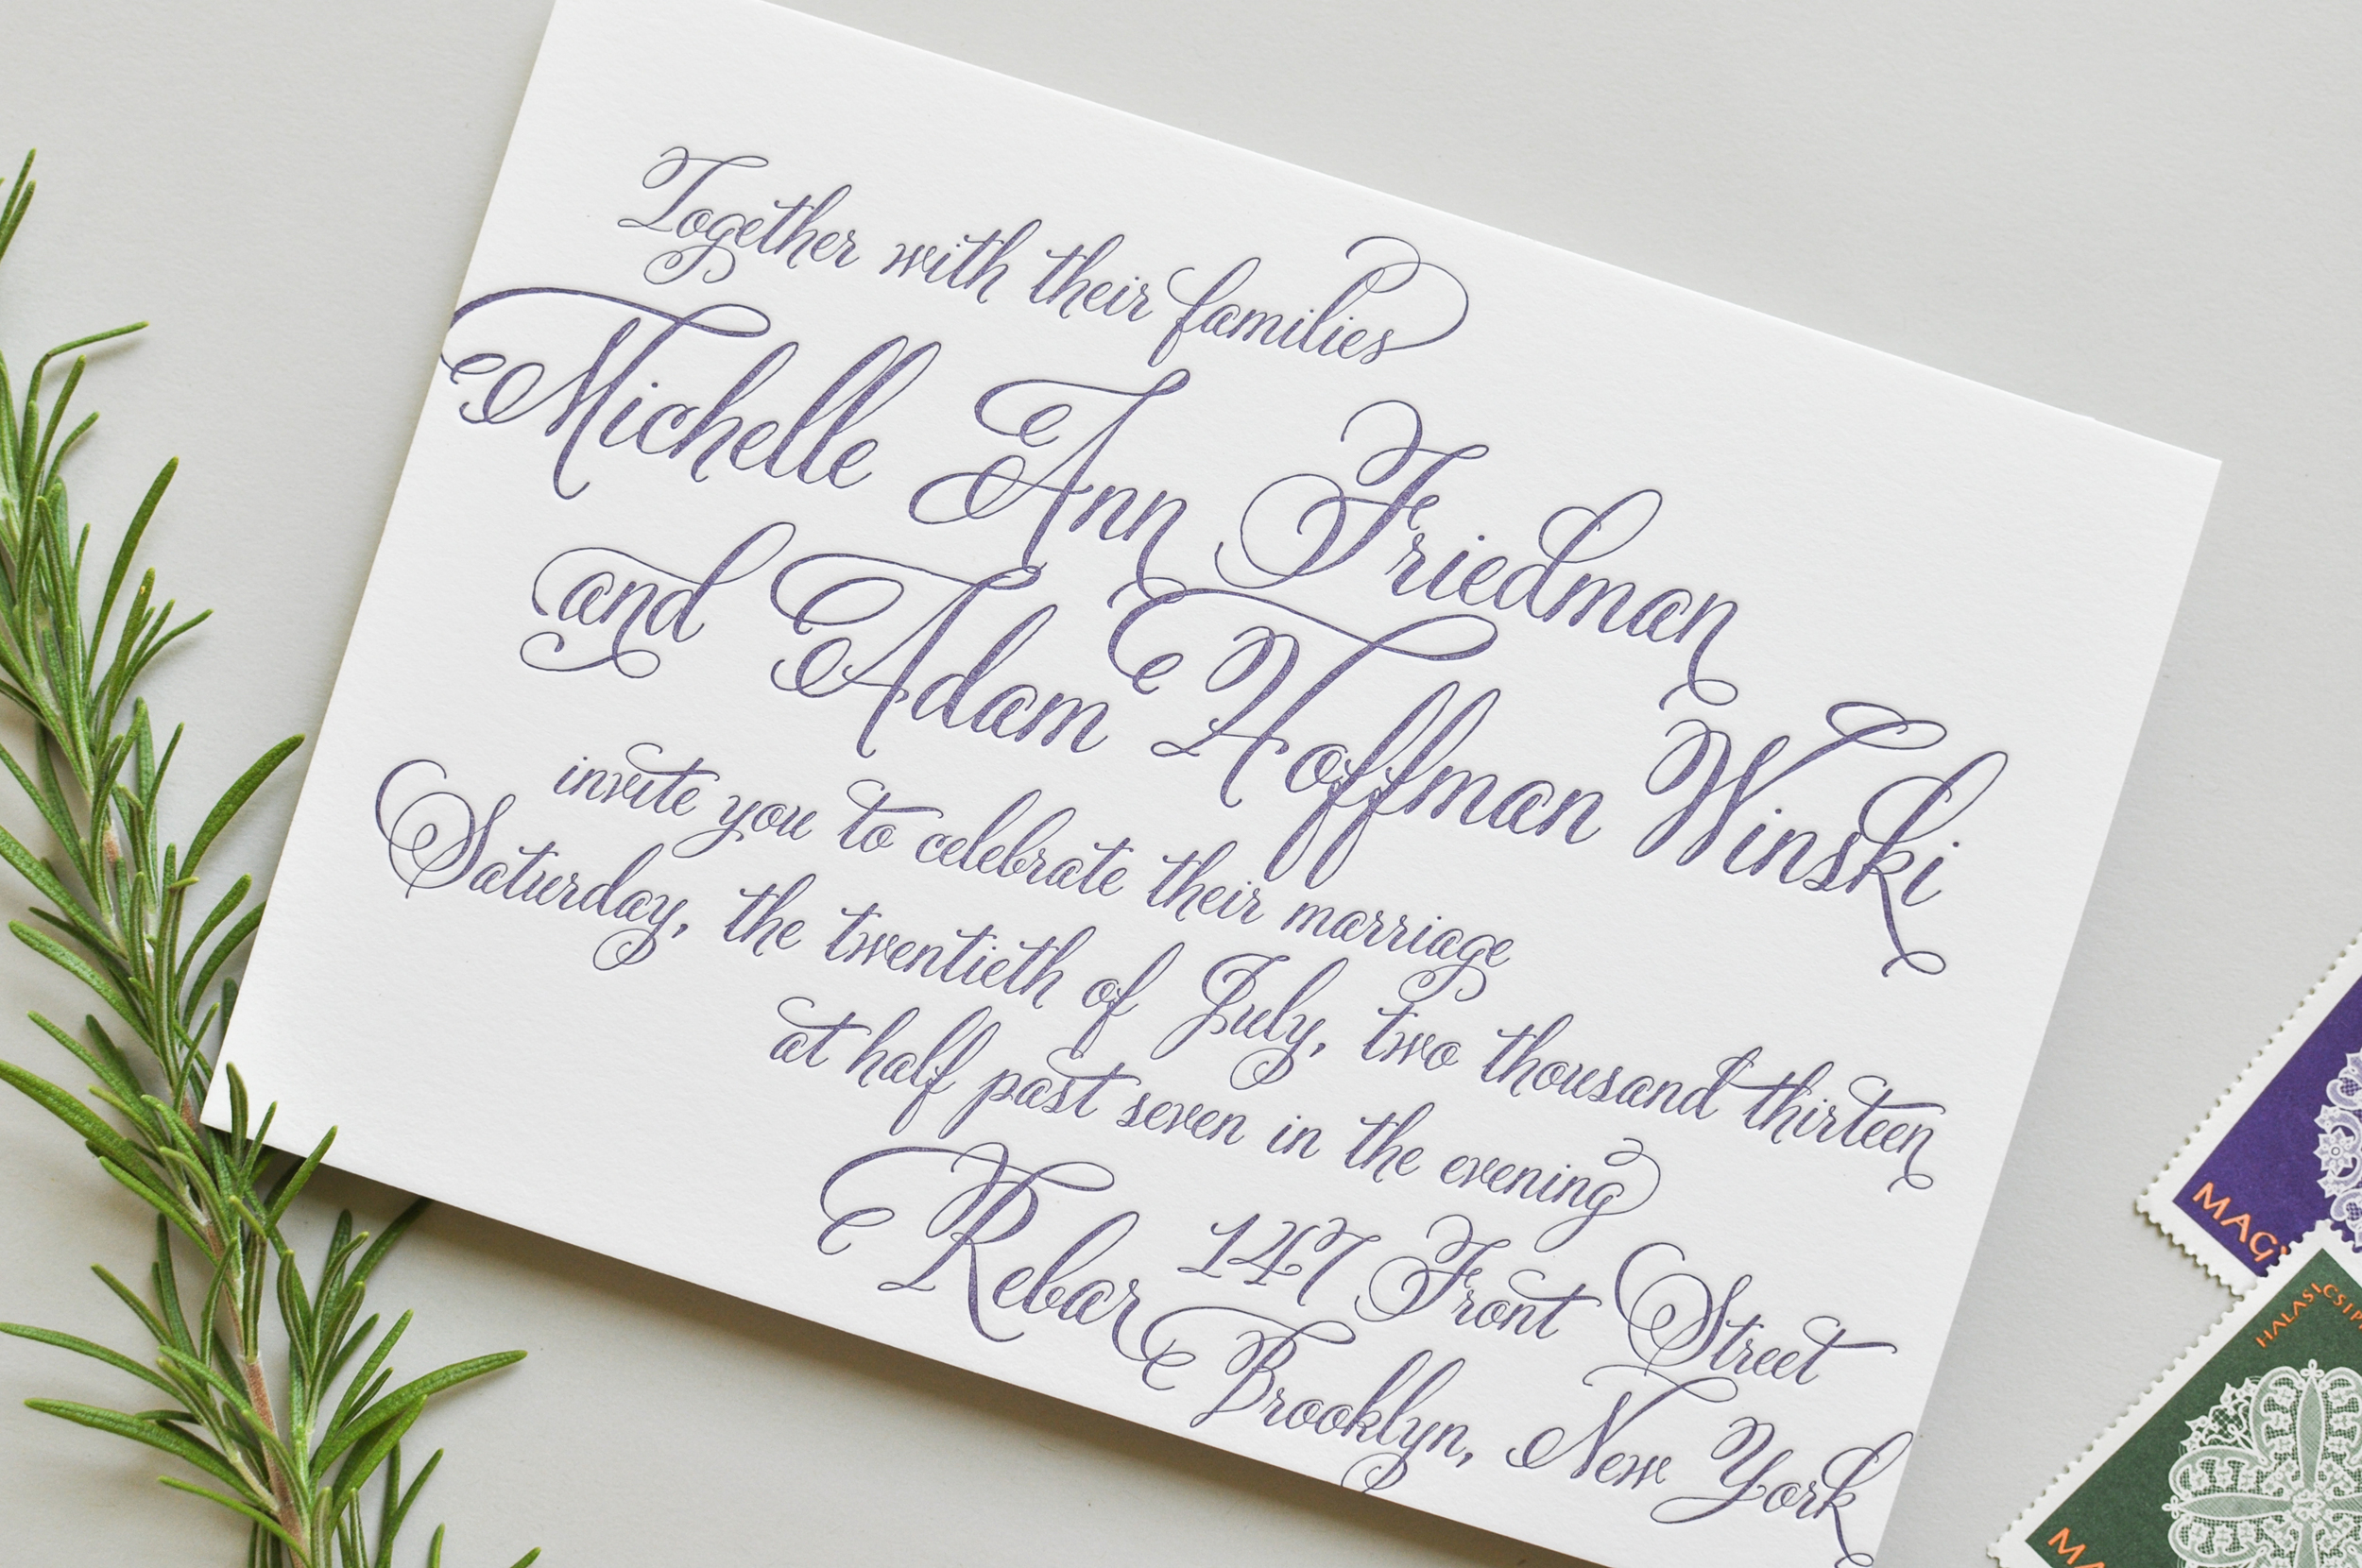 Together with their families
Michelle Ann Friedman
and Adam Hoffman Winski
invite you to celebrate their marriage
Saturday, the twentieth of July, two thousand thirteen
at half past seven in the evening
Rebar 147 Front Street
Brooklyn, New York
MAGY
HALASI CSIP
MA